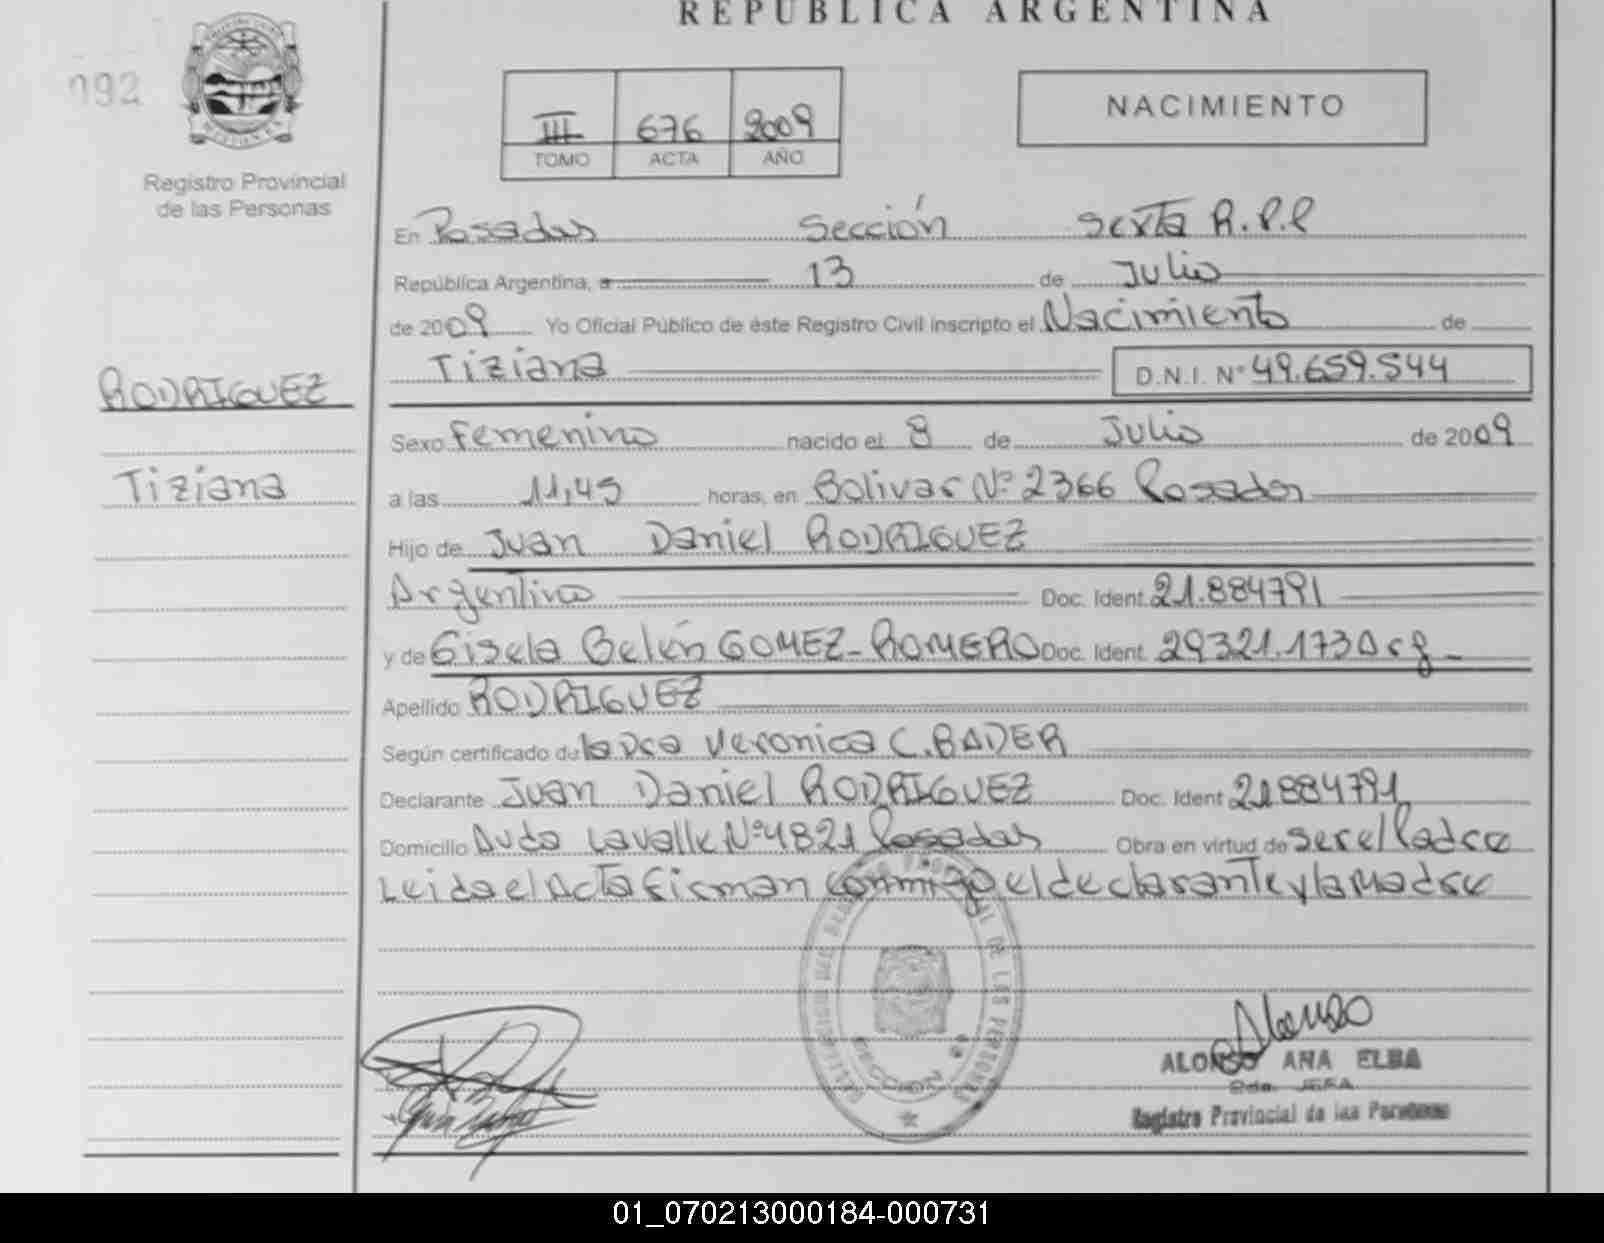 REPUBLICA ARGENTINA
092
NACIMIENTO
III 676 2009
TOMO ACTA AÑO
Registro Provincial
de las Personas
En Posadas Sección Sexta R.P.P
República Argentina, a 13 de Julio
de 2009 Yo Oficial Público de éste Registro Civil inscripto el Nacimiento de
Tiziana D.N.I. N° 49.659.544
RODRIGUEZ
Sexo Femenino nacido el 8 de Julio de 2009
Tiziana
a las 11,45 horas, en Bolivar Nº 2366 Posadas
Hijo de Juan Daniel RODRIGUEZ
Argentino Doc. Ident. 21.884791
y de Gisela Belén GOMEZ-ROMERO Doc. Ident. 29321.173 Arg_
Apellido RODRIGUEZ
Según certificado de la Dra Veronica C. BADER
Declarante Juan Daniel RODRIGUEZ Doc. Ident 21884791
Domicilio Avda Lavalle Nº 4821 Posadas Obra en virtud de ser el Padre
Leida el Acta Firman conmigo el declarante y la Madre
SECCION
Alonso
ALONSO ANA ELBA
2da. JEFA
Registro Provincial de las Personas
01_070213000184-000731